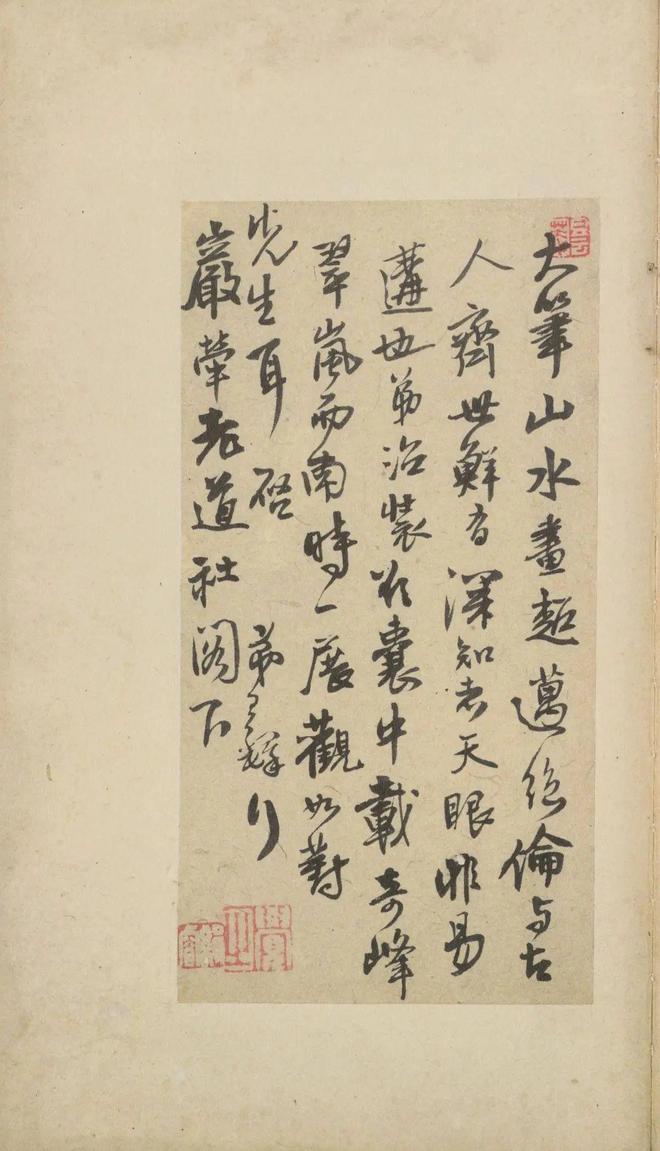 大筆山水畫超邁絕倫與古
人齊世鮮有深知者天眼非易
遘也弟治裝於囊中載奇峰
翠嵐而南時一展觀如對
先生耳 啓 弟
巖犖老道社閣下